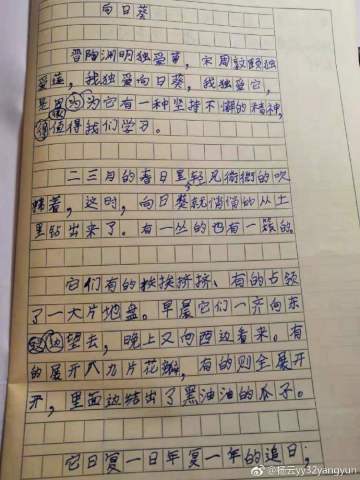 向日葵
晋陶渊明独爱菊，宋周敦颐独
爱莲，我独爱向日葵，我独爱它，
是因为它有一种坚持不懈的精神，
值得我们学习。
二三月的春日里，轻风微微的吹
着，这时，向日葵就悄悄的从土
里钻出来了。有一丛的也有一簇的
它们有的挨挨挤挤、有的占领
了一大片地盘。早晨它们一齐向东
边望去，晚上又向西边看来。有
的展开八九片花瓣，有的则全展开
开，里面边结出了黑油油的瓜子。
它日复一日年复一年的追日；
@杨云yy32yangyun